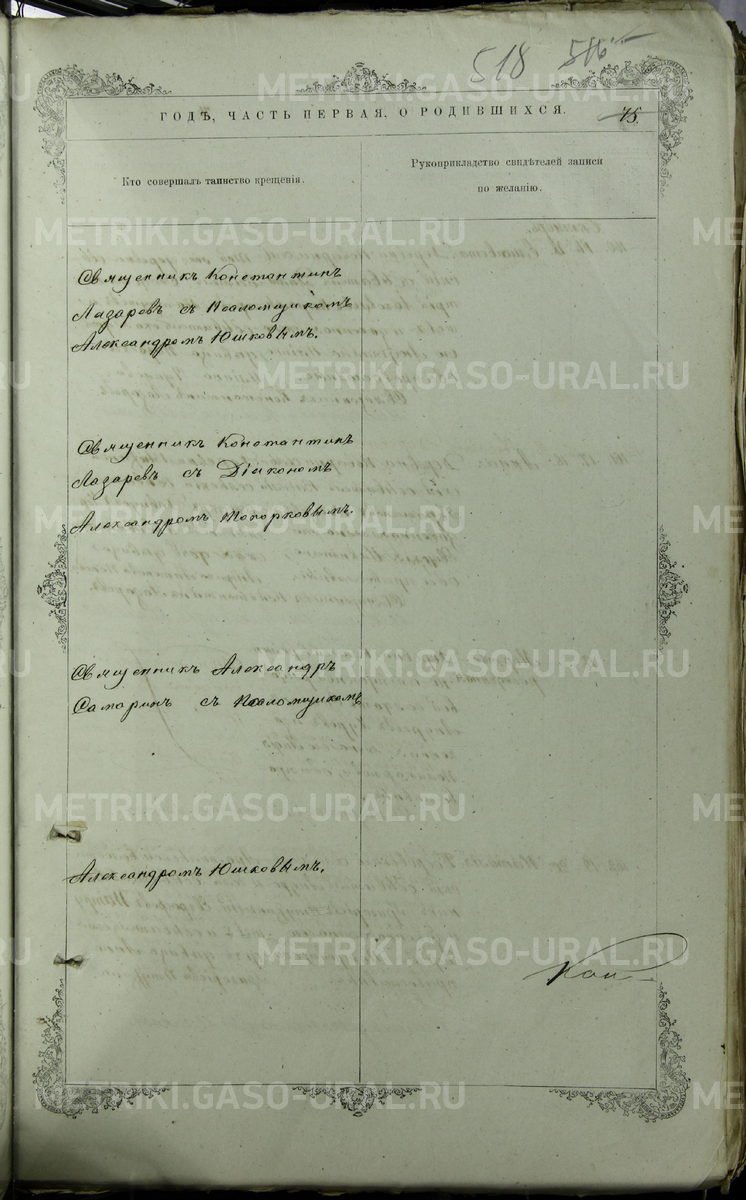 518 516
ГОДЪ, ЧАСТЬ ПЕРВАЯ, О РОДИВШИХСЯ.
75
Кто совершалъ таинство крещенія.
Рукоприкладство свидѣтелей записи
по желанію.
Священникъ Константинъ
Лазаревъ съ Псаломщикомъ
Александромъ Юшковымъ.
Священникъ Константинъ
Лазаревъ съ Діакономъ
Александромъ Топорковымъ.
Священникъ Александръ
Самаринъ съ Псаломщикомъ
Александромъ Юшковымъ.
METRIKI.GASO-URAL.RU